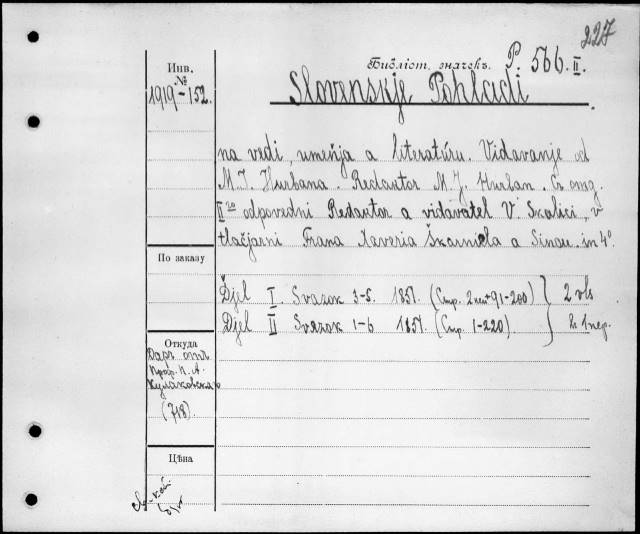 227
Библіот. значекъ. P. 566. II.
Инв.
№
1919-152.
Slovenskje Pohladi
na vedi, umeňja a literatúru. Vidavanje od
M. J. Hurbana. Redaktor M. J. Hurban. Съ отд.
II го odpovedni Redaktor a vidavatel V. Skalici, v
tlačjarni Frana Xaveria Škarnicla a Sinov. in 4°.
По заказу
Djel I. Svazok 3-5. 1851. (Стр. 2 нен+91-200)
Djel II Svazok 1-6 1851. (Стр. 1-220)
2 vls
въ 1 пер.
Откуда
Даръ отъ
Проф. П. А.
Кулаковскаго
(718).
Цѣна